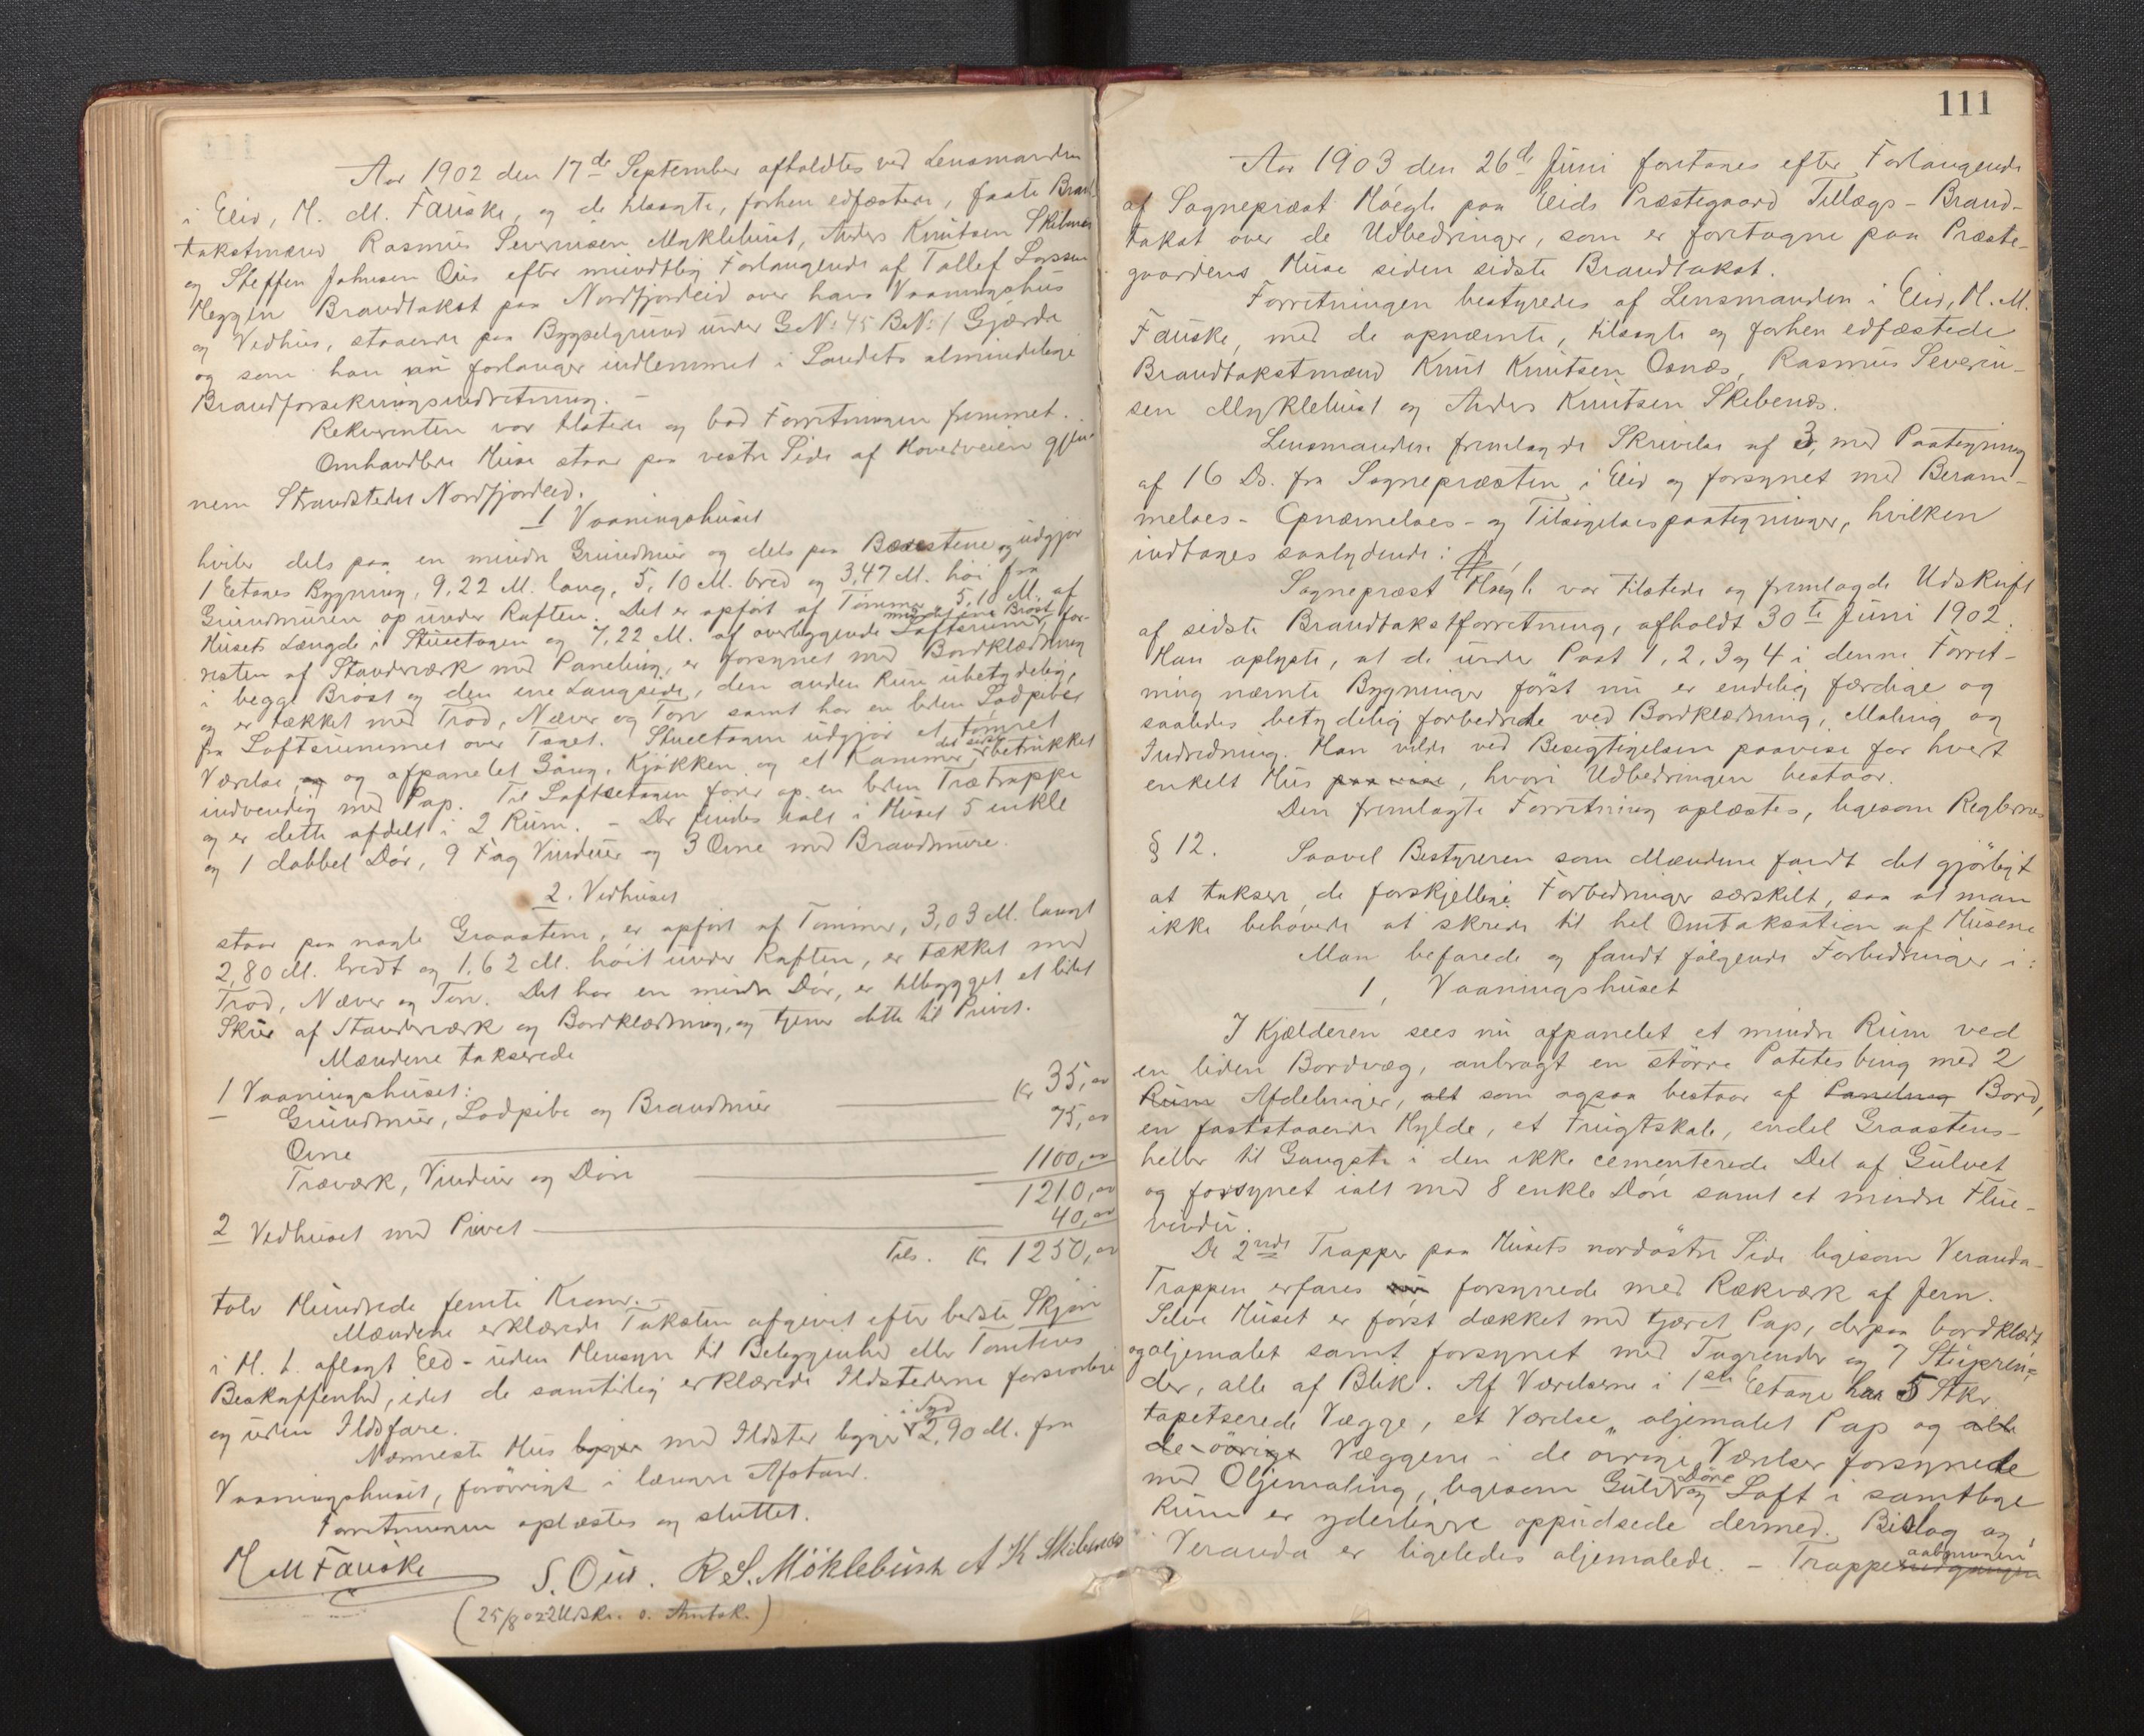 Aar 1902 den 17de September afholdtes ved Lensmanden
i Eid, M. M. Fauske, og de tilsagte, forhen edfæstede, faste Brand-
takstmænd Rasmus Severinsen Myklebust, Anders Knutsen Skibenes
og Steffen Johnsen Os efter mundtlig Forlangende af Tollef Larssen
Heggen Brandtakst paa Nordfjordeid over hans Vaaningshus
og Vedhus, staaende paa Bygselgrund under G.No. 45 B.No. 1 Gjærde
og som han nu forlanger indlemmet i Landets almindelige
Brandforsikringsindretning. –
Rekvirenten var tilstede og bad Forretningen fremmet.
Omhandlede Huse staar paa vestre Side af Hovedveien gjen-
nem Strandstedet Nordfjordeid.
1 Vaaningshuset
hviler dels paa en mindre Grundmur og dels paa Bærestene og udgjør
1 Etages Bygning, 9,22 M. lang, 5,10 M. bred og 3,47 M. høi fra
Grundmuren op under Raften. Det er opført af Tømmer 5,10 M. af
Husets Længde i Stueetagen og 7,22 M. af overliggende Loftsrum,
resten af Standerværk med Paneling, er forsynet med Bordklædning
i begge Brøst og den ene Langside, den anden kun ubetydelig,
og er tækket med Trod, Næver og Torv samt har en liden Ladpibe
fra Loftsrummet over Taget. Stueetagen udgjør et tømret
Værelse og afpanelet Gang, Kjøkken og et Kammer, det sidste betrukket
indvendig med Pap. Til Loftsetagen fører op en liden Trætrappe
og er dette afdelt i 2 Rum. – Der findes ialt i Huset 5 enkle
og 1 dobbel Dør, 9 Fag Vinduer og 3 Ovne med Brandmure.
2. Vedhuset
staar paa nogle Graastene, er opført af Tømmer, 3,03 M. langt
2,80 M. bredt og 1,62 M. høit under Raften, er tækket med
Trod, Næver og Torv. Det har en mindre Dør, er tilbygget et lidet
Skur af Standerværk og Bordklædning, og tjener dette til Privet.
Mændene takserede
1 Vaaningshuset:
Grundmur, Ladpibe og Brandmur Kr 35,00
Ovne 75,00
Træværk, Vinduer og Døre 1100,00
1210,00
2 Vedhuset med Privet 40,00
Tils. Kr 1250,00
tolv Hundrede femti Kroner. –
Mændene erklærede Taksten afgivet efter bedste Skjøn
i H. t. aflagt Eed – uden Hensyn til Beliggenhed eller Tomtens
Beskaffenhed, idet de samtidig erklærede Ildstederne forsvarlige
og uden Ildsfare.
Nærmeste Hus med Ildsted ligger i Syd 2,90 M. fra
Vaaningshuset, forøvrigt i længere Afstand.
Forretningen oplæstes og sluttet.
M M Fauske S. Os. R. S. Möklebust A K Skibenes
(25/8 02 Udskr. o. Amtsk.)
111
Aar 1903 den 26de Juni foretoges efter Forlangende
af Sognepræst Høegh paa Eids Præstegaard Tillægs-Brand-
takst over de Udbedringer, som er foretagne paa Præste-
gaardens Huse siden sidste Brandtakst.
Forretningen bestyredes af Lensmanden i Eid, M. M.
Fauske, med de opnæmnte, tilsagte og forhen edfæstede
Brandtakstmænd Knut Knutsen Osnæs, Rasmus Severin-
sen Myklebust og Anders Knutsen Skibenæs.
Lensmanden fremlagde Skrivelse af 3, med Paategning
af 16 Ds. fra Sognepræsten i Eid og forsynet med Beram-
melses- Opnæmelses- og Tilsigelsespaategninger, hvilken
indtages saalydende: #
Sognepræst Høegh var tilstede og fremlagde Udskrift
af sidste Brandtakstforretning, afholdt 30te Juni 1902.
Han oplyste, at de under Post 1, 2, 3 og 4 i denne Forret-
ning nævnte Bygninger først nu er endelig færdige og
saaledes betydelig forbedrede ved Bordklædning, Maling og
Indredning. Han vilde ved Besigtigelsen paavise for hvert
enkelt Hus paavise, hvori Udbedringen bestaar.
Den fremlagte Forretning oplæstes, ligesom Reglernes
§ 12. Saavel Bestyreren som Mændene fandt det gjørligt
at taksere de forskjellige Forbedringer særskilt, saa at man
ikke behøvede at skride til hel Omtaksation af Husene
Man befarede og fandt følgende Forbedringer i:
1, Vaaningshuset
I Kjælderen sees nu afpanelet et mindre Rum ved
en liden Bordvæg, anbragt en større Potetesbing med 2
Rum Afdelinger, alt som ogsaa bestaar af Paneling Bord,
en faststaaende Hylde, et Frugtskab, endel Graastens-
heller til Gangsti i den ikke cementerede Del af Gulvet
og forsynet ialt med 8 enkle Døre samt et mindre Flue-
vindu.
De 2nde Trapper paa Husets nordøstre Side ligesom Veranda-
Trappen erfares nu forsynede med Rækværk af Jern.
Selve Huset er først dækket med tjæret Pap, derpaa bordklædt
og oljemalet samt forsynet med Tagrender og 7 Stupren-
der, alle af Blik. Af Værelserne i 1ste Etage har 5 Stkr.
tapetserede Vægge, et Værelse oljemalet Pap og alle
de øvrige Væggene i de øvrige Værelser forsynede
med Oljemaling, ligesom Gulv, Døre og Loft i samtlige
Rum er yderligere oppudsede dermed. Bislag og
Veranda er ligeledes oljemalede. – Trappeaabningen